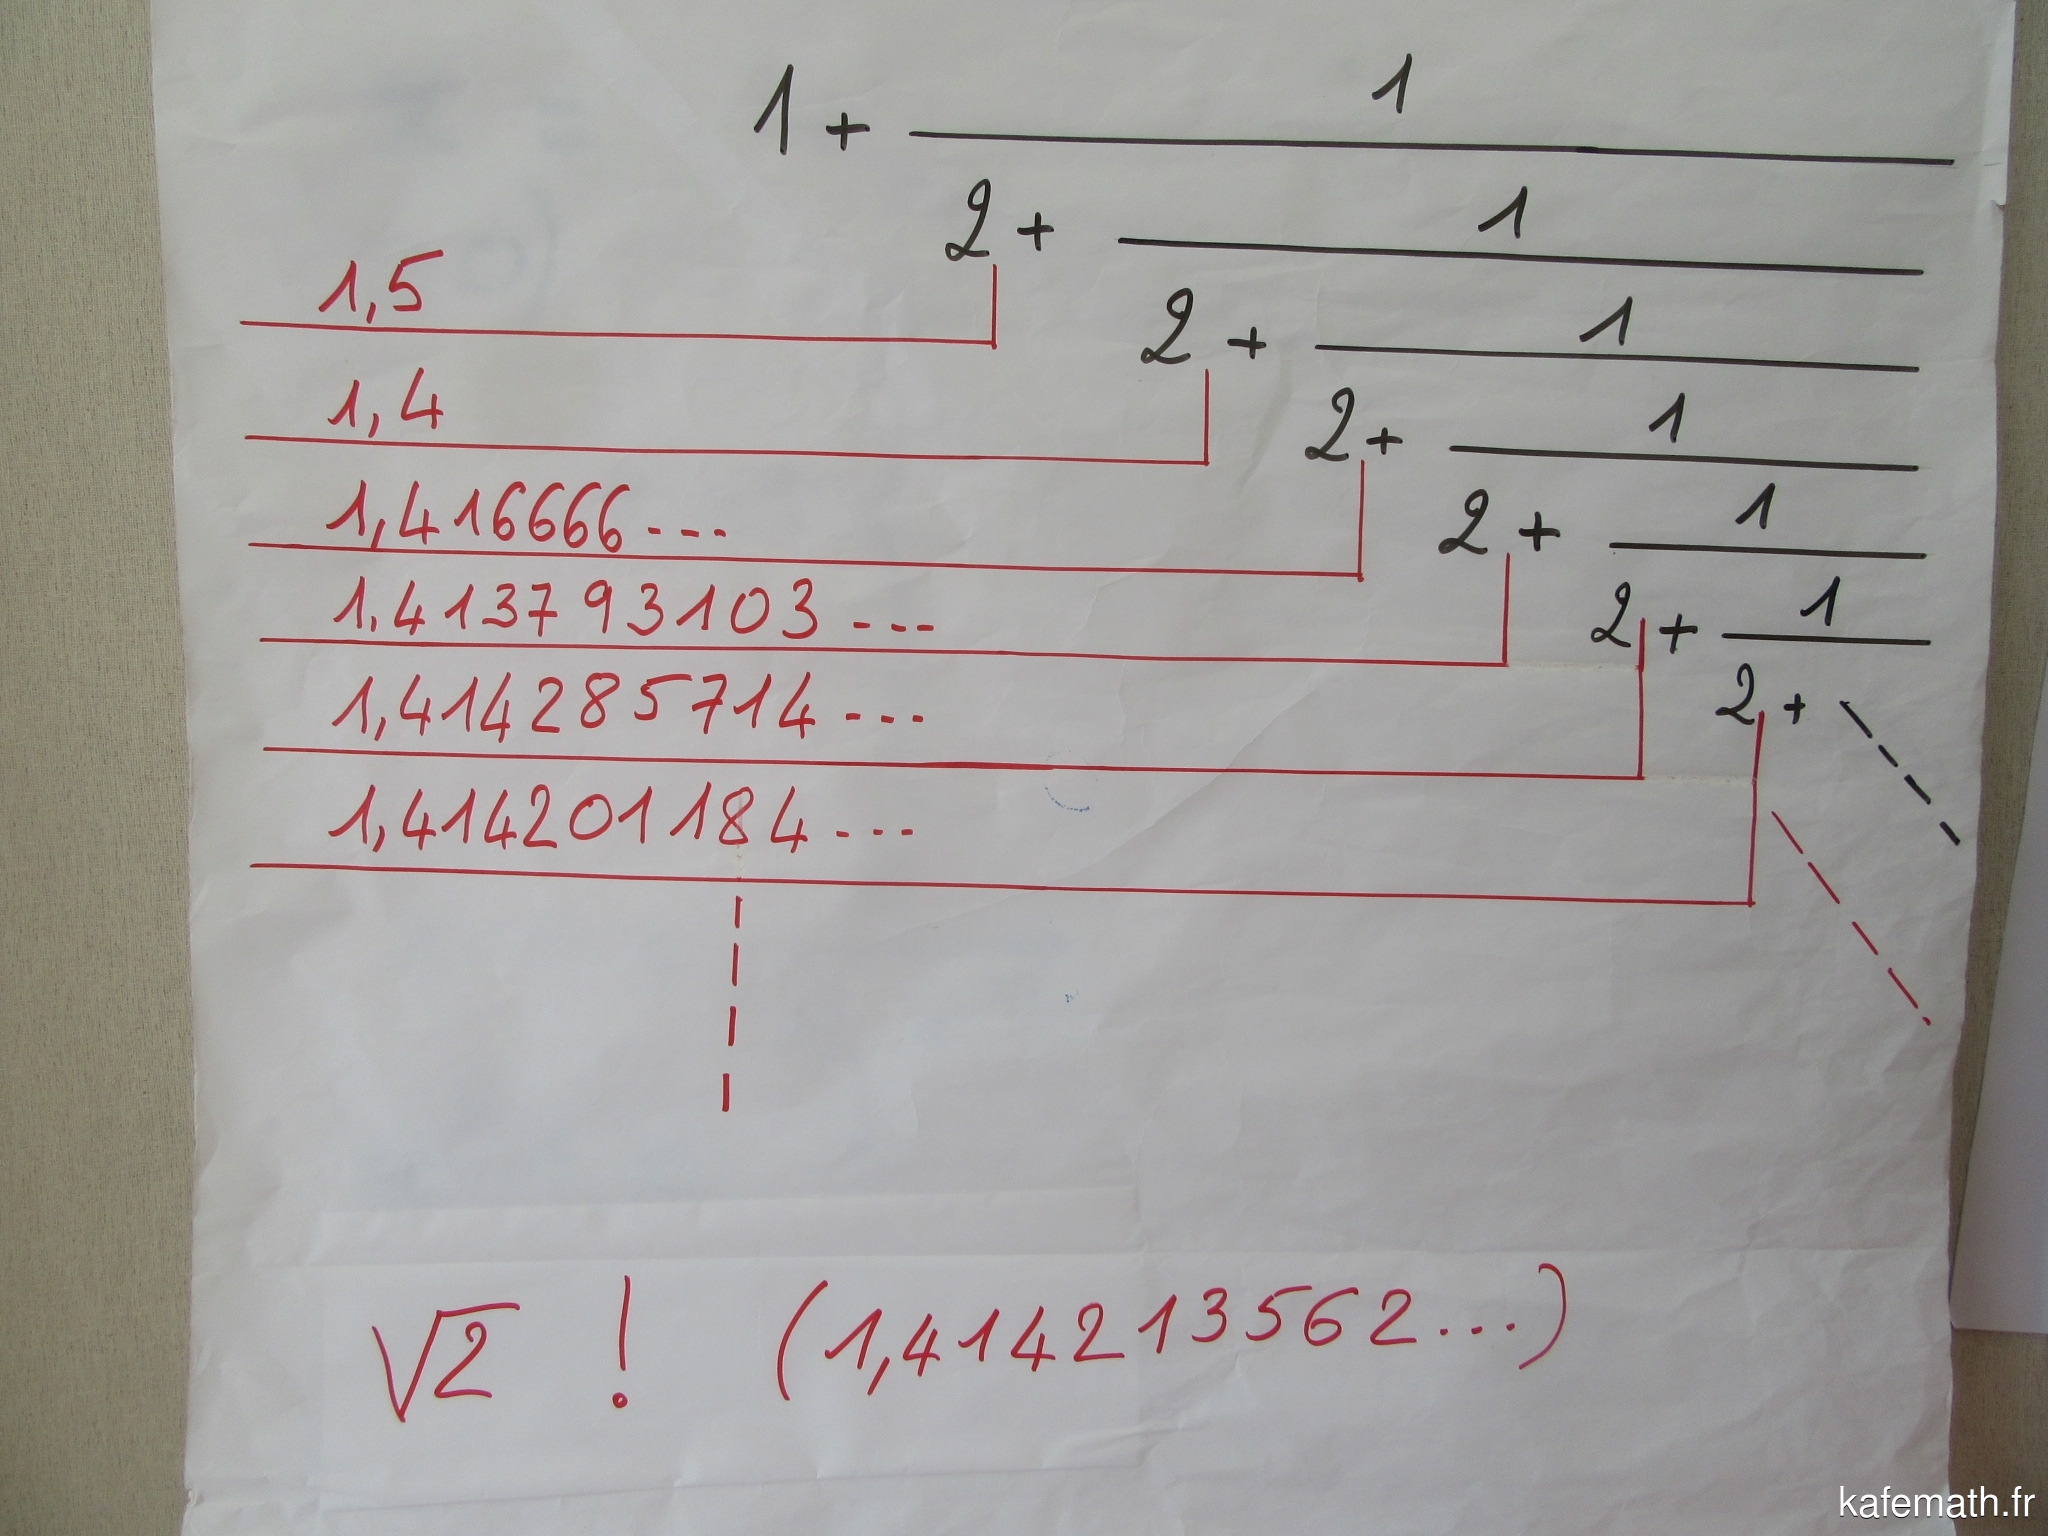 1 + 1
2 + 1
1,5
2 + 1
1,4
2 + 1
1,416666...
2 + 1
1,413793103...
2 + 1
1,414285714...
2 +
1,414201184...
√2 ! (1,414213562...)
kafemath.fr